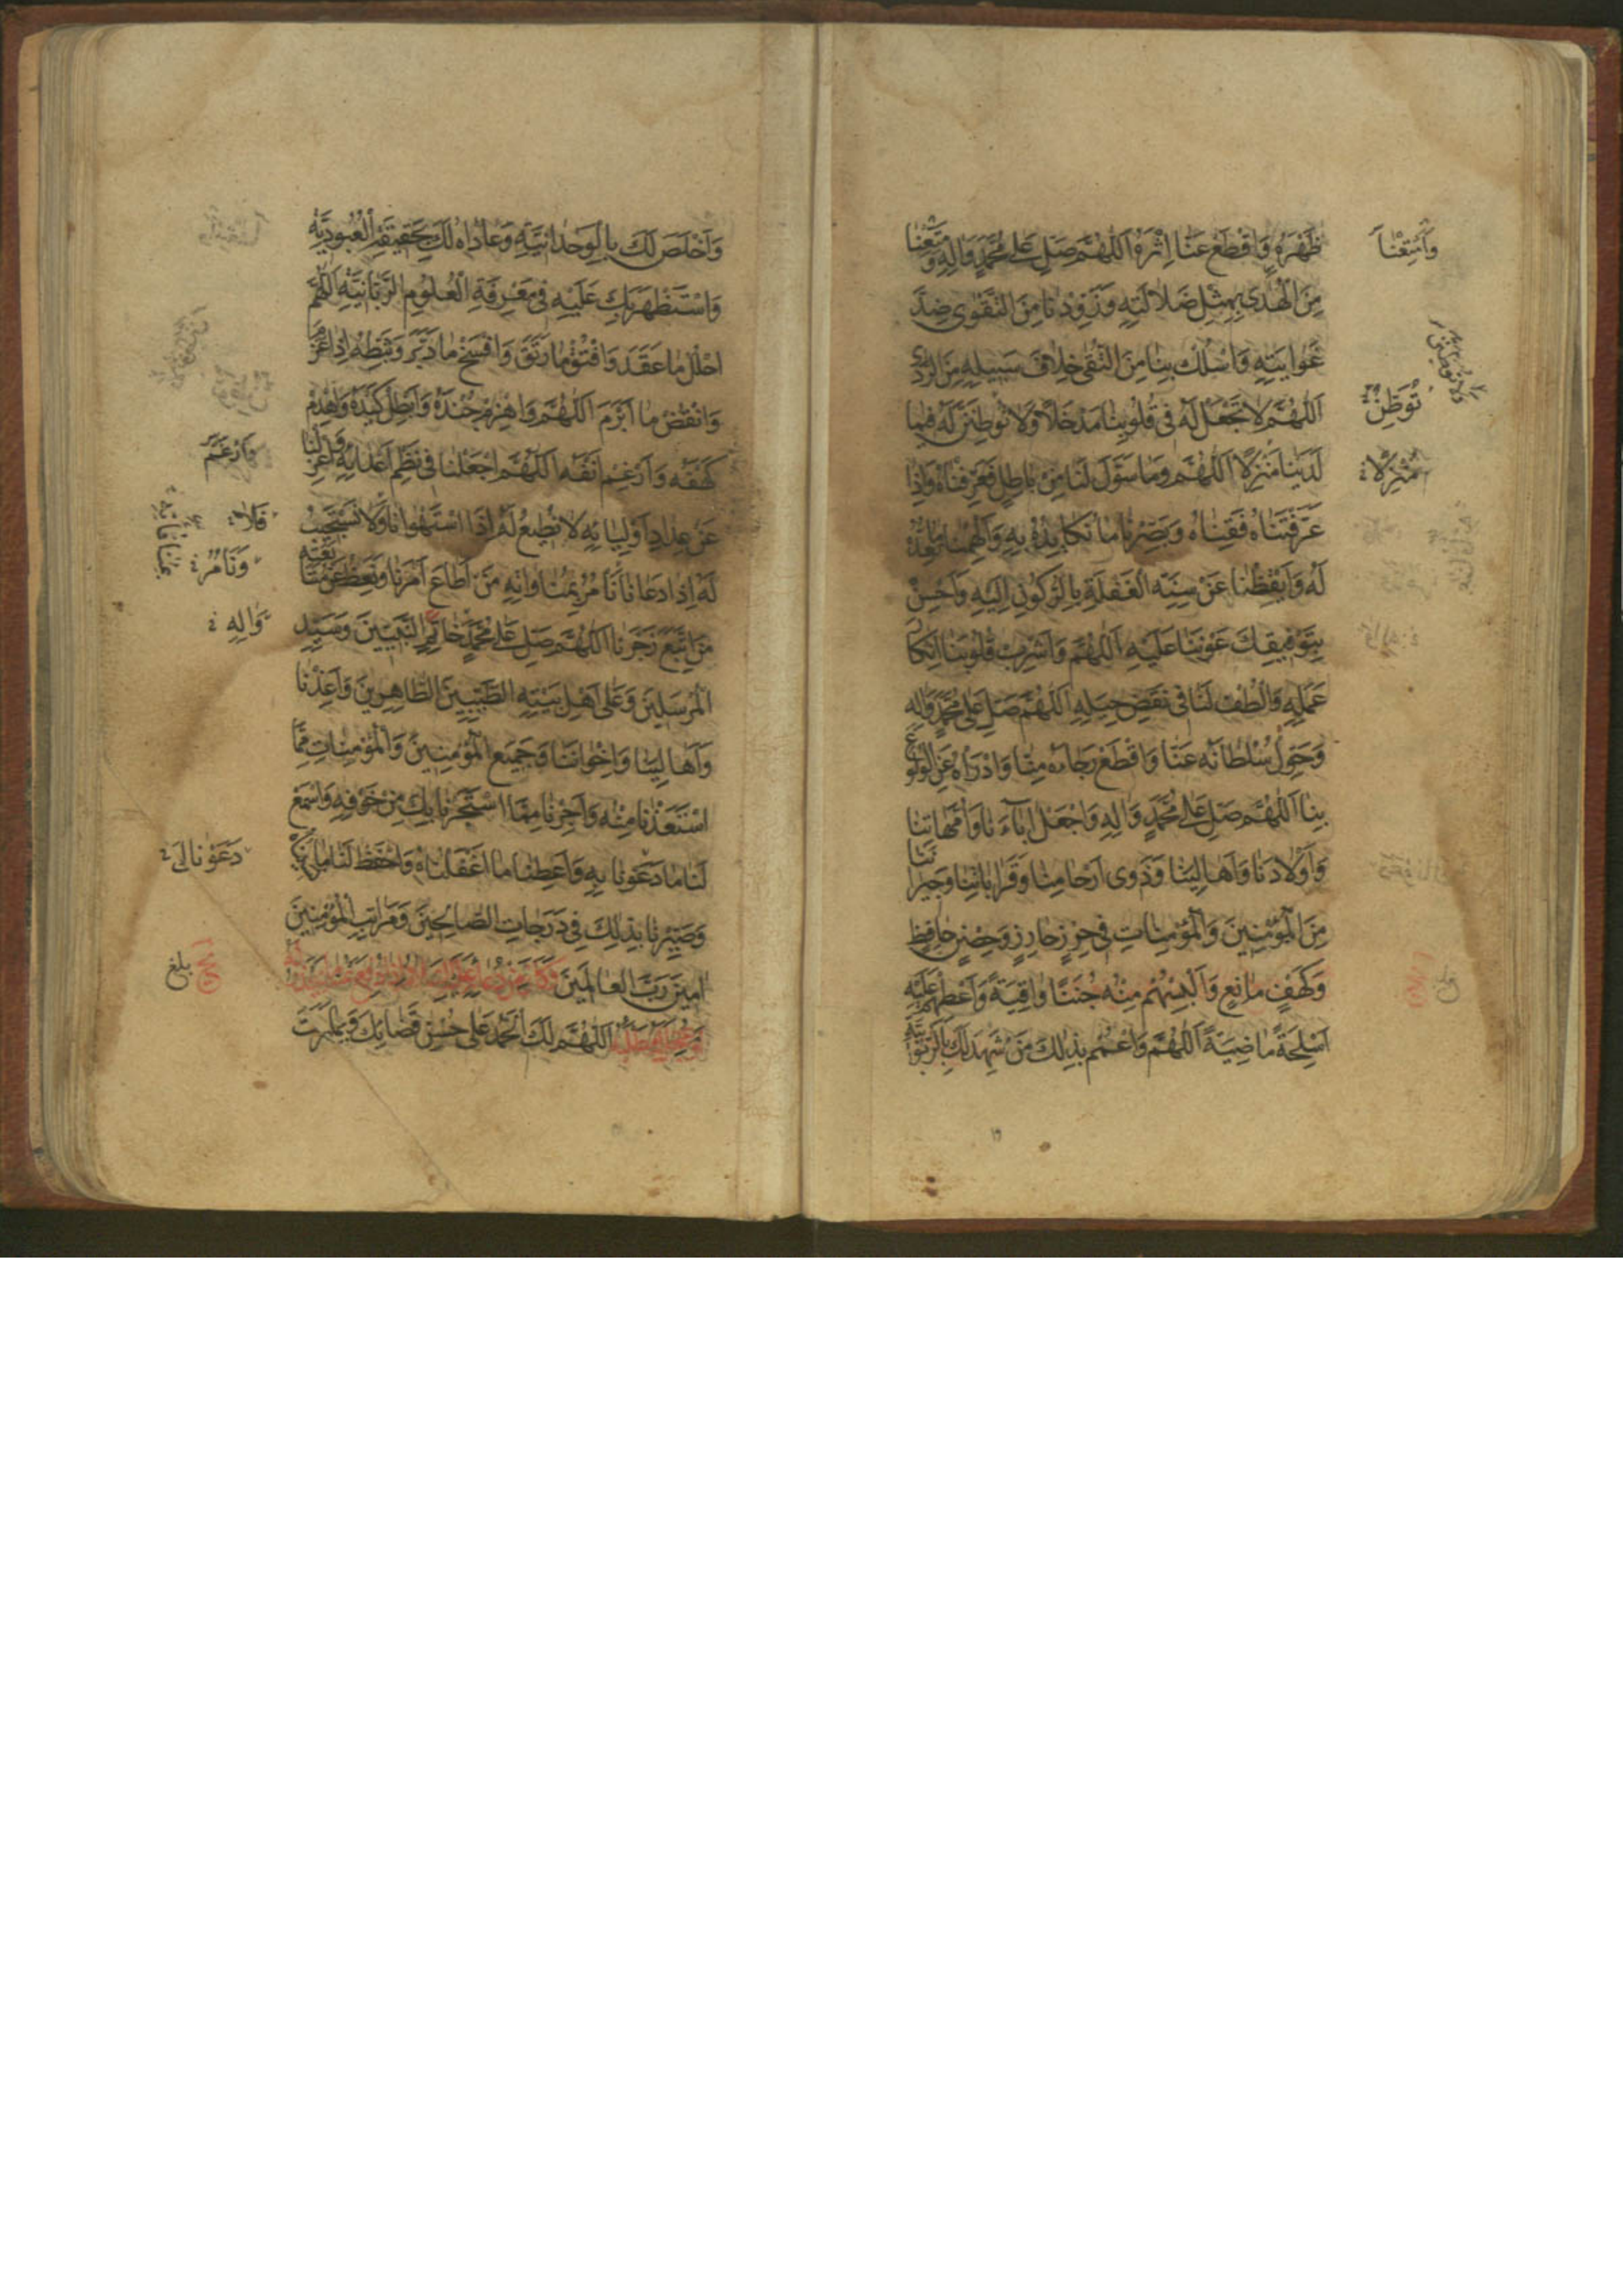 ظَهْرَهُ وَاقْطَعْ عَنَّا اِثْرَهُ اَللّٰهُمَّ صَلِّ عَلٰى مُحَمَّدٍ وَاٰلِهِ وَمَتِّعْنَا
وَاَمْتِعْنَا
مِنَ الْهُدٰى بِمِثْلِ ضَلَالَتِهِ وَزَوِّدْنَا مِنَ التَّقْوٰى ضِدَّ
غَوَايَتِهِ وَاسْلُكْ بِنَا مِنَ التُّقٰى خِلَافَ سَبِيلِهِ مِنَ الرَّدٰى
اَللّٰهُمَّ لَا تَجْعَلْ لَهُ فِى قُلُوبِنَا مَدْخَلًا وَلَا تُوطِنَنَّ لَهُ فِيمَا
تُوَطِّنَنَّ
لَدَيْنَا مَنْزِلًا اَللّٰهُمَّ وَمَا سَوَّلَ لَنَا مِنْ بَاطِلٍ فَعَرِّفْنَاهُ وَاِذَا
مُنْزَلًا
عَرَّفْتَنَاهُ فَقِنَاهُ وَبَصِّرْنَا مَا نُكَايِدُهُ بِهِ وَاَلْهِمْنَا مَا نُعِدُّ
لَهُ وَاَيْقِظْنَا عَنْ سِنَةِ الْغَفْلَةِ بِالرُّكُونِ اِلَيْهِ وَاَحْسِنْ
بِتَوْفِيقِكَ عَوْنَنَا عَلَيْهِ اَللّٰهُمَّ وَاَشْرِبْ قُلُوبَنَا اِنْكَارَ
عَمَلِهِ وَالْطُفْ لَنَا فِى نَقْضِ حِيَلِهِ اَللّٰهُمَّ صَلِّ عَلٰى مُحَمَّدٍ وَاٰلِهِ
وَحَوِّلْ سُلْطَانَهُ عَنَّا وَاقْطَعْ رَجَاءَهُ مِنَّا وَادْرَأْهُ عَنِ الْوُلُوعِ
بِنَا اَللّٰهُمَّ صَلِّ عَلٰى مُحَمَّدٍ وَاٰلِهِ وَاجْعَلْ اٰبَاءَنَا وَاُمَّهَاتِنَا
وَاَوْلَادَنَا وَاَهَالِيَنَا وَذَوِى اَرْحَامِنَا وَقَرَابَاتِنَا وَجِيرَانَنَا
مِنَ الْمُؤْمِنِينَ وَالْمُؤْمِنَاتِ فِى حِرْزٍ حَارِزٍ وَحِصْنٍ حَافِظٍ
وَكَهْفٍ مَانِعٍ وَاَلْبِسْهُمْ مِنْهُ جُنَنًا وَاقِيَةً وَاَعْطِهِمْ عَلَيْهِ
اَسْلِحَةً مَاضِيَةً اَللّٰهُمَّ وَاعْمُمْ بِذٰلِكَ مَنْ شَهِدَ لَكَ بِالرُّبُوبِيَّةِ
وَاَخْلَصَ لَكَ بِالْوَحْدَانِيَّةِ وَعَادَاهُ لَكَ بِحَقِيقَةِ الْعُبُودِيَّةِ
وَاسْتَظْهَرَ بِكَ عَلَيْهِ فِى مَعْرِفَةِ الْعُلُومِ الرَّبَّانِيَّةِ اَللّٰهُمَّ
احْلُلْ مَا عَقَدَ وَافْتُقْ مَا رَتَقَ وَافْسَخْ مَا دَبَّرَ وَثَبِّطْهُ اِذَا عَزَمَ
وَانْقُضْ مَا اَبْرَمَ اَللّٰهُمَّ وَاهْزِمْ جُنْدَهُ وَاَبْطِلْ كَيْدَهُ وَاهْدِمْ
كَهْفَهُ وَاَرْغِمْ اَنْفَهُ اَللّٰهُمَّ اجْعَلْنَا فِى نَظْمِ اَعْدَائِهِ وَاعْزِلْنَا
وَاَرْغَمَ
عَنْ عِدَادِ اَوْلِيَائِهِ لَا نُطِيعُ لَهُ اِذَا اسْتَهْوَانَا وَلَا نَسْتَجِيبُ
فَلَا
لَهُ اِذَا دَعَانَا نَأْمُرُ بِمُنَاوَاتِهِ مَنْ اَطَاعَ اَمْرَنَا وَنَعِظُ عَنْ مُتَابَعَتِهِ
وَنَأْمُرُ
مَنِ اتَّبَعَ زَجْرَنَا اَللّٰهُمَّ صَلِّ عَلٰى مُحَمَّدٍ خَاتَمِ النَّبِيِّينَ وَسَيِّدِ
وَاٰلِهِ
الْمُرْسَلِينَ وَعَلٰى اَهْلِ بَيْتِهِ الطَّيِّبِينَ الطَّاهِرِينَ وَاَعِذْنَا
وَاَهَالِيَنَا وَاِخْوَانَنَا وَجَمِيعَ الْمُؤْمِنِينَ وَالْمُؤْمِنَاتِ مِمَّا
اسْتَعَذْنَا مِنْهُ وَاَجِرْنَا مِمَّا اسْتَجَرْنَا بِكَ مِنْ خَوْفِهِ وَاسْمَعْ
لَنَا مَا دَعَوْنَا بِهِ وَاَعْطِنَا مَا اَغْفَلْنَاهُ وَاحْفَظْ لَنَا مَا نَسِينَاهُ
دَعَوْنَاكَ
وَصَيِّرْنَا بِذٰلِكَ فِى دَرَجَاتِ الصَّالِحِينَ وَمَرَاتِبِ الْمُؤْمِنِينَ
اٰمِينَ رَبَّ الْعَالَمِينَ
بلغ
اَللّٰهُمَّ لَكَ الْحَمْدُ عَلٰى حُسْنِ قَضَائِكَ وَبِمَا صَرَفْتَ